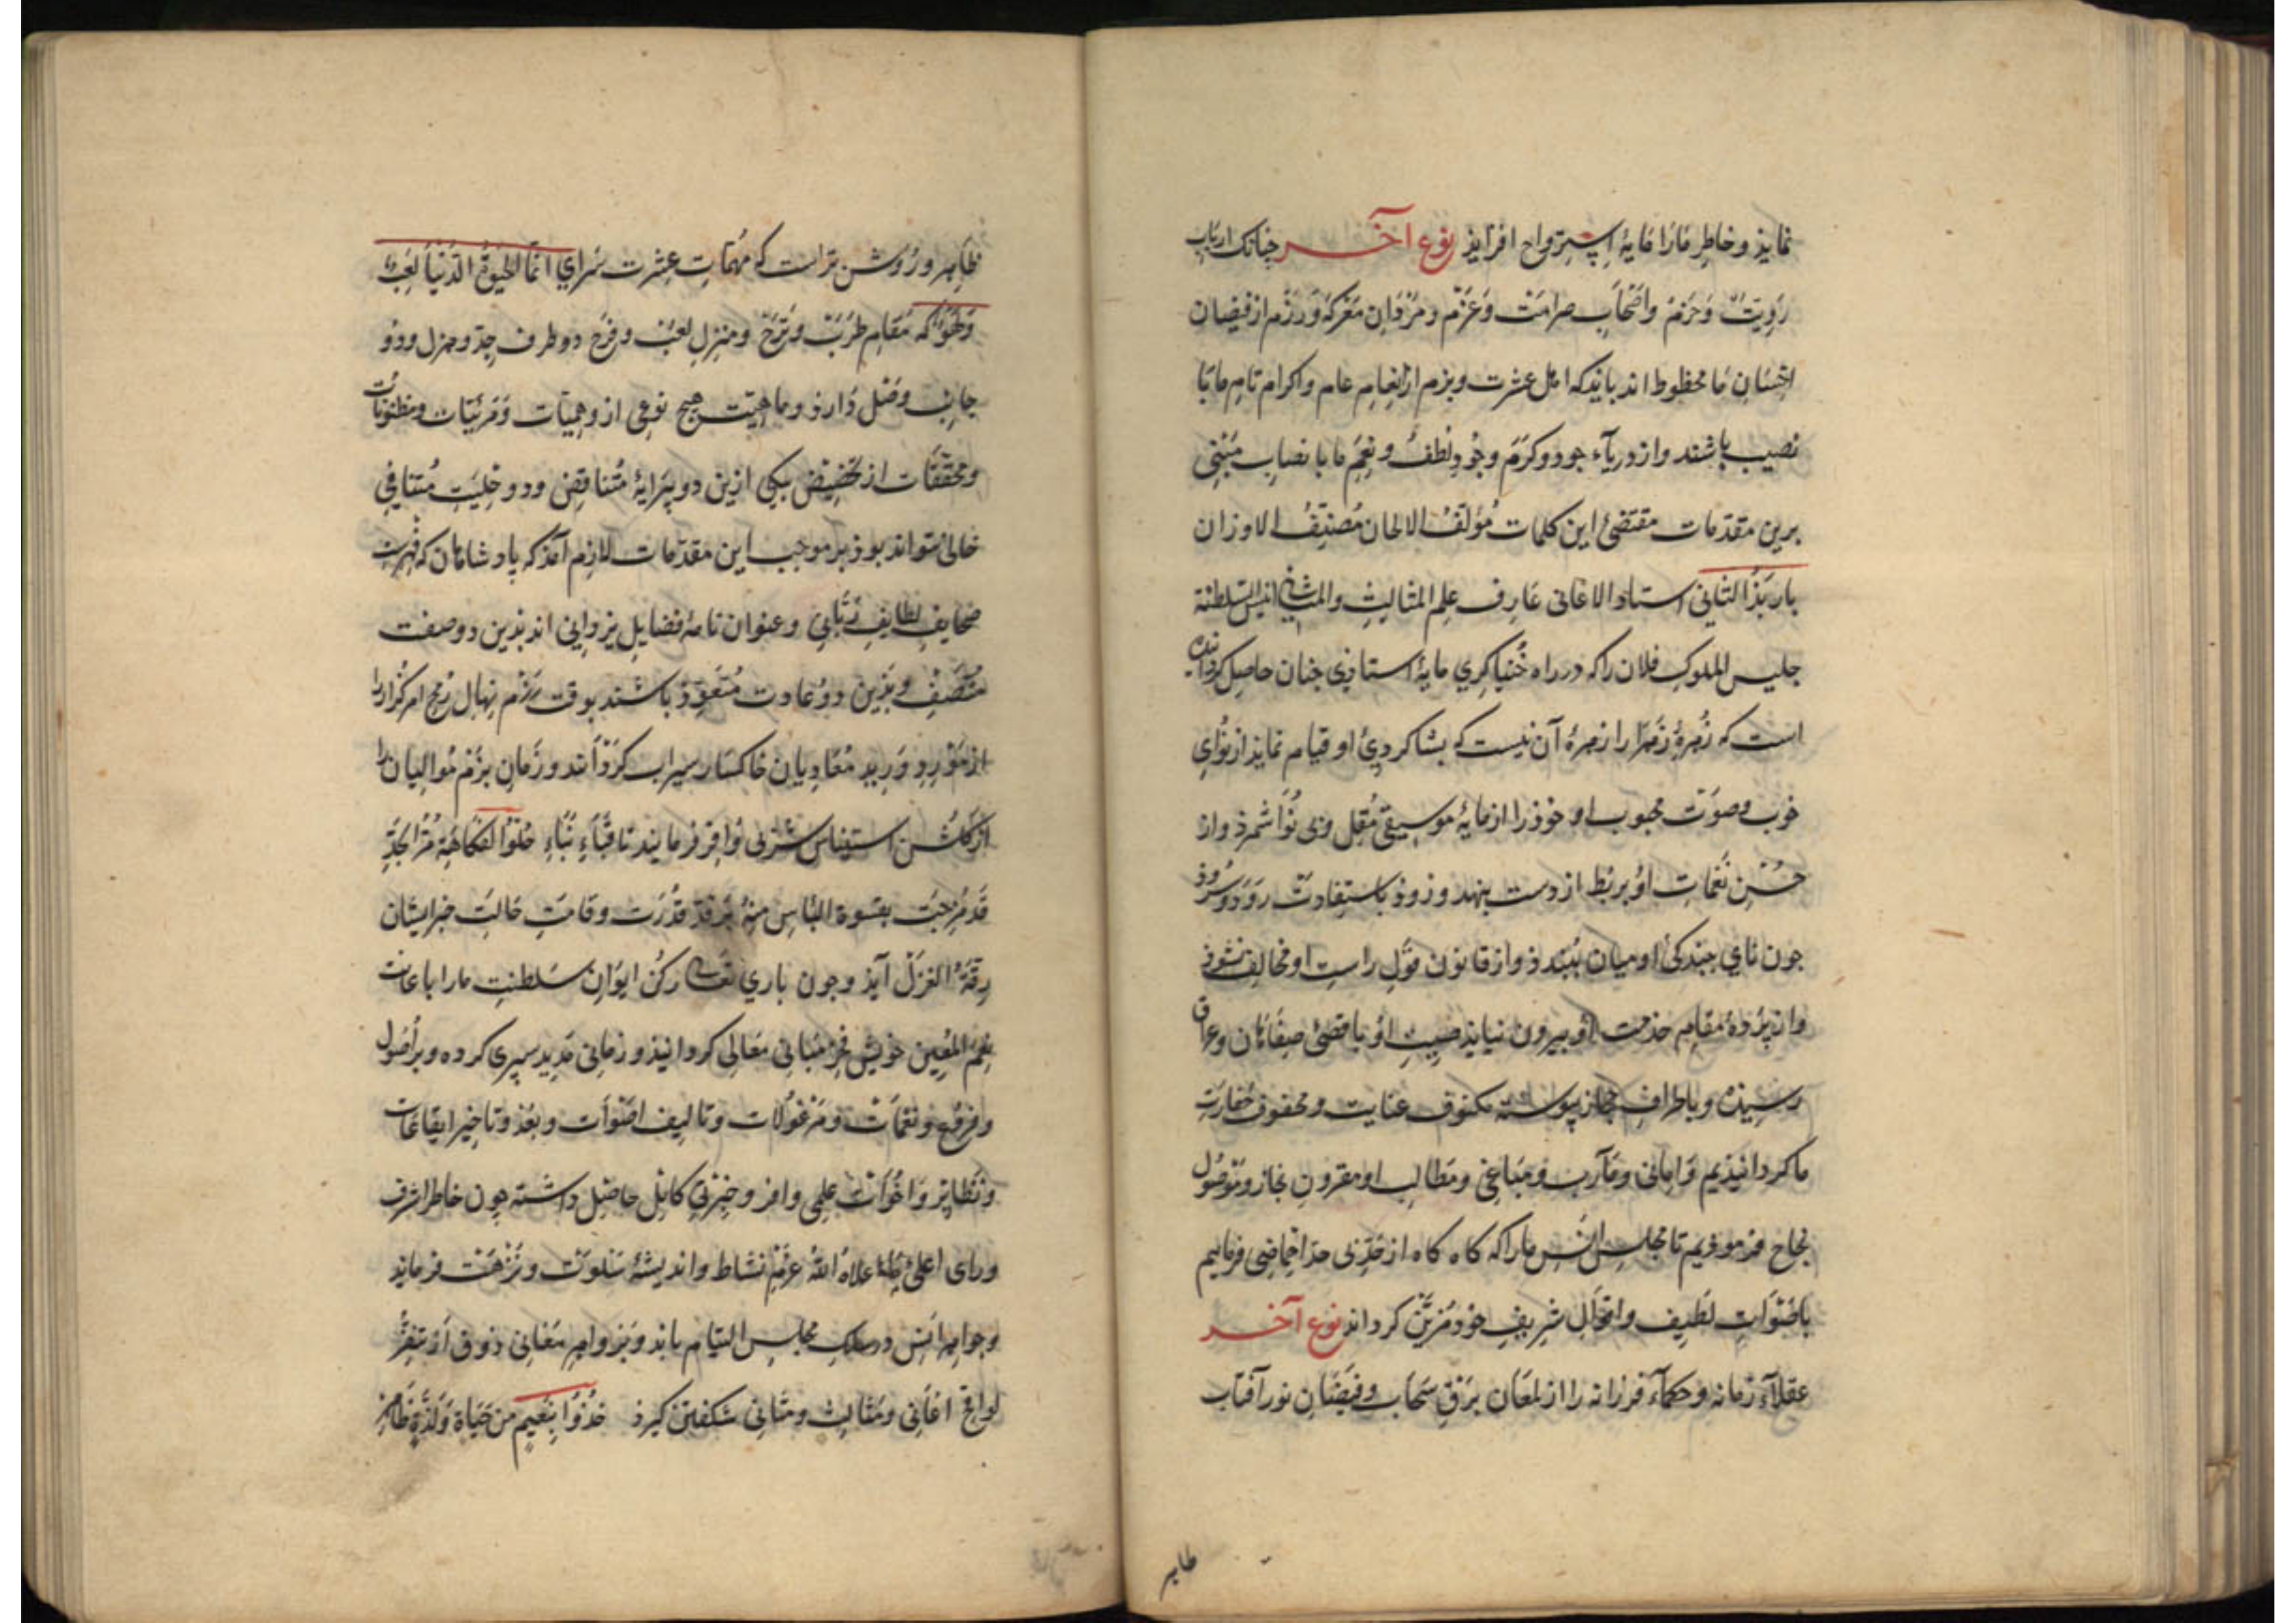 نمایذ و خاطر مارا مایهٔ استرواح افزایذ نوع آخر چنانک ارباب
رَوِیّت وَ حَزم وَاصحاب صرامت وَ عَزم و مَردان مَعرکه وَ رَزم از فیضان
احسان ما محظوظ اند بایذ که اهل عشرت و بزم از اِنعام عام و اکرام تام ما با
نصیب باشند و از دریآء جود و کرم وجُودِ لطف و نِعَم ما با نصاب مبنی
برین مقدّمات مقتضیٔ این کلمات مُؤلّفُ الالحان مُصنّفُ الاوزان
باربَذُ الثانی استاد الاغانی عارف علم المثالث والمثانی انیس السلطنة
جلیس الملوک فلان را که در راه خُنیاگری مایهٔ استاذی چنان حاصل کردانیده
است که زُهرهٔ زَهرا را زهرهٔ آن نیست که بشاکردیٔ او قیام نمایذ از نوای
خوب و صوت محبوب او خوذ را از مایهٔ موسیقی مُقِل و بی نوا شمرذ و از
حُسنِ نغمات او بربط از دست بنهد و زوذ باستفادت رَوَد و سُروذ
چون نای ببندکیٔ او میان ببندذ و از قانون قول راست او مخالف نشوذ
و از پردهٔ مقام خدمت او بیرون نیایذ صیتِ او باقصیٔ صفاهان و عراق
رسیذه و باطراف حجاز پیوسته مکنوف عنایت و محفوف خفارت
ما کردانیذیم وَامانی و مآرب و مباغی و مطالب او مقرونِ نجاز و موصول
نجاح فرموذیم تا مجلس انس ما را که کاه کاه از جدّ بی حدّ اِحماضی فرماییم
باصوَات لطیف و اقوال شریف خود مزیّن کرداند نوع آخر
عقلآء زمانه و حکمآء فرزانه را از لمعان برق سحاب و فیضان نور آفتاب
ظاهر
ظاهر و روشن تر است که مهمّات عشرت سرای انما الحیوة الدنیا لعب
ولهو که مقام طرَب و ترَح و منزل لعب و فرَح دو طرف جِدّ و هزل و دو
جانب و فصل دارذ و ماهیّت هیچ نوعی از وهمیّات وَ مرئیّات و مظنونات
و محققات از تخصیص بیکی ازین دو پیرایهٔ مُتناقض و دو حلیت مُتنافی
خالی نتواند بوذ بر موجب این مقدّمات لازم آمذ که پادشاهان که فهرست
صحایف لطایف ربّانی و عنوان نامهٔ فضایل یزدانی اند بذین دو صفت
متّصف و بذین دو عادت مُتعوّذ باشند بوقت رزم نهال رُمح امرکزار را
از مورد وَرید مُعادیان خاکسار سیراب کردانند و زمان بزم موالیان را
از کاس استیناس شربی وافر فرمایند تا قباء ثناء حُلوُ الفکاهة مُرّ الجِدِّ
قد مُزجت بقسوة الباس منه بر قدّ قدرت و قامت حالت خبر ایشان
رِقّةُ الغزل آیذ و چون باری تعالی رکن ایوان سلطنت ما را باعانت
نِعمَ المُعین خویش مبانی معالی کردانیذ و زمانی مدید سپری کرده و بر اصول
و فروع و نغمات و مَرغولات و تالیف اصوات و بعد و تاخیر ایقاعات
و نظایر و اخوات علمی وافر و خبرتی کامل حاصل داشته چون خاطر اشرف
و رای اعلیٔ ما اعلاه اللهُ عزم نشاط و اندیشهٔ سلوت و نزهت فرمایذ
و جواهر انس در سلک مجلس التیام یابد و بزواهر مغانی ذوق از تنفّس
لواقح اغانی و مثالث و مثانی شکفتن کیرذ خُذوا بنعیم من حیاة وَ لذّة